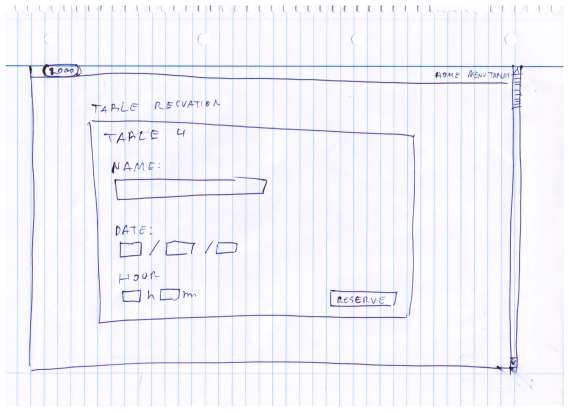 LOGO
HOME MENU TABLES
TABLE RESVATION
TABLE 4
NAME:
DATE:
/ /
HOUR
h m
RESERVE